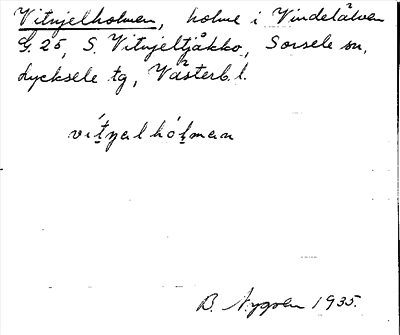 Vitnjelholmen, holme i Vindelälven
G. 25, S. Vitnjeltjåkko, Sorsele sn,
Lycksele tg, Västerb. l.
vítnjal hólman
B. Nygren 1935.